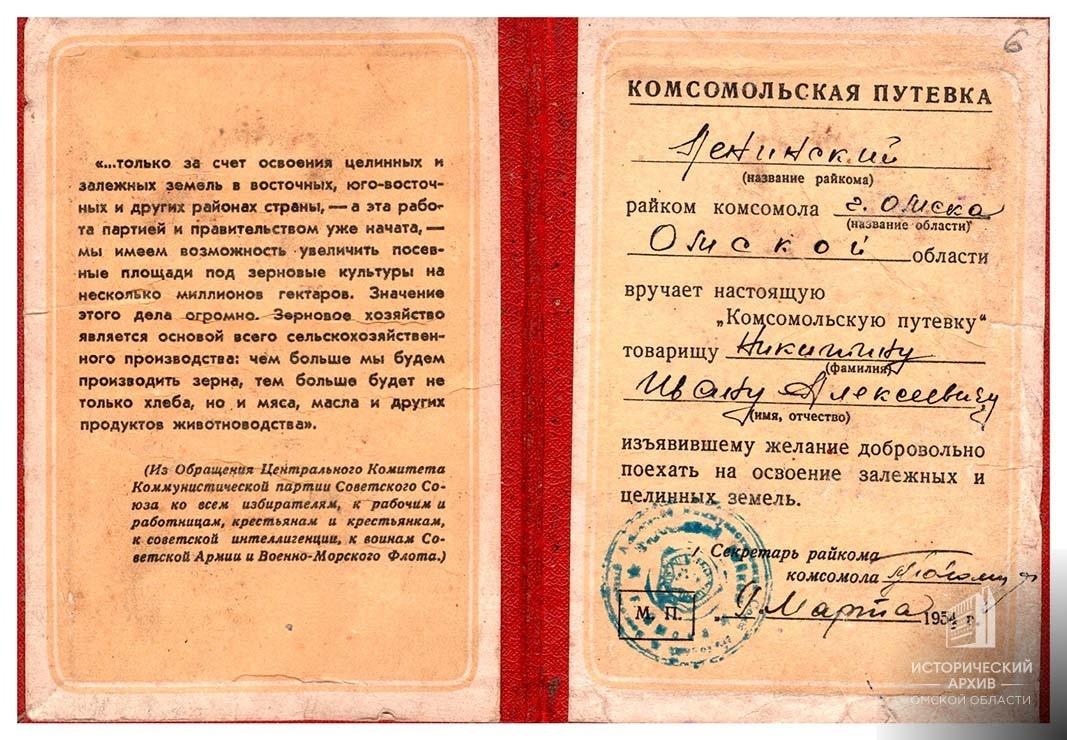 «...только за счет освоения целинных и
залежных земель в восточных, юго-восточ-
ных и других районах страны, — а эта рабо-
та партией и правительством уже начата, —
мы имеем возможность увеличить посев-
ные площади под зерновые культуры на
несколько миллионов гектаров. Значение
этого дела огромно. Зерновое хозяйство
является основой всего сельскохозяйствен-
ного производства: чем больше мы будем
производить зерна, тем больше будет не
только хлеба, но и мяса, масла и других
продуктов животноводства».
(Из Обращения Центрального Комитета
Коммунистической партии Советского Со-
юза ко всем избирателям, к рабочим и
работницам, крестьянам и крестьянкам,
к советской интеллигенции, к воинам Со-
ветской Армии и Военно-Морского Флота.)
6
КОМСОМОЛЬСКАЯ ПУТЕВКА
Ленинский
(название райкома)
райком комсомола г. Омска
(название области)
Омской области
вручает настоящую
„Комсомольскую путевку"
товарищу Никитину
(фамилия)
Ивану Алексеевичу
(имя, отчество)
изъявившему желание добровольно
поехать на освоение залежных и
целинных земель.
Секретарь райкома
комсомола
М. П.
Марта 1954 г.
ИСТОРИЧЕСКИЙ
АРХИВ
ОМСКОЙ ОБЛАСТИ